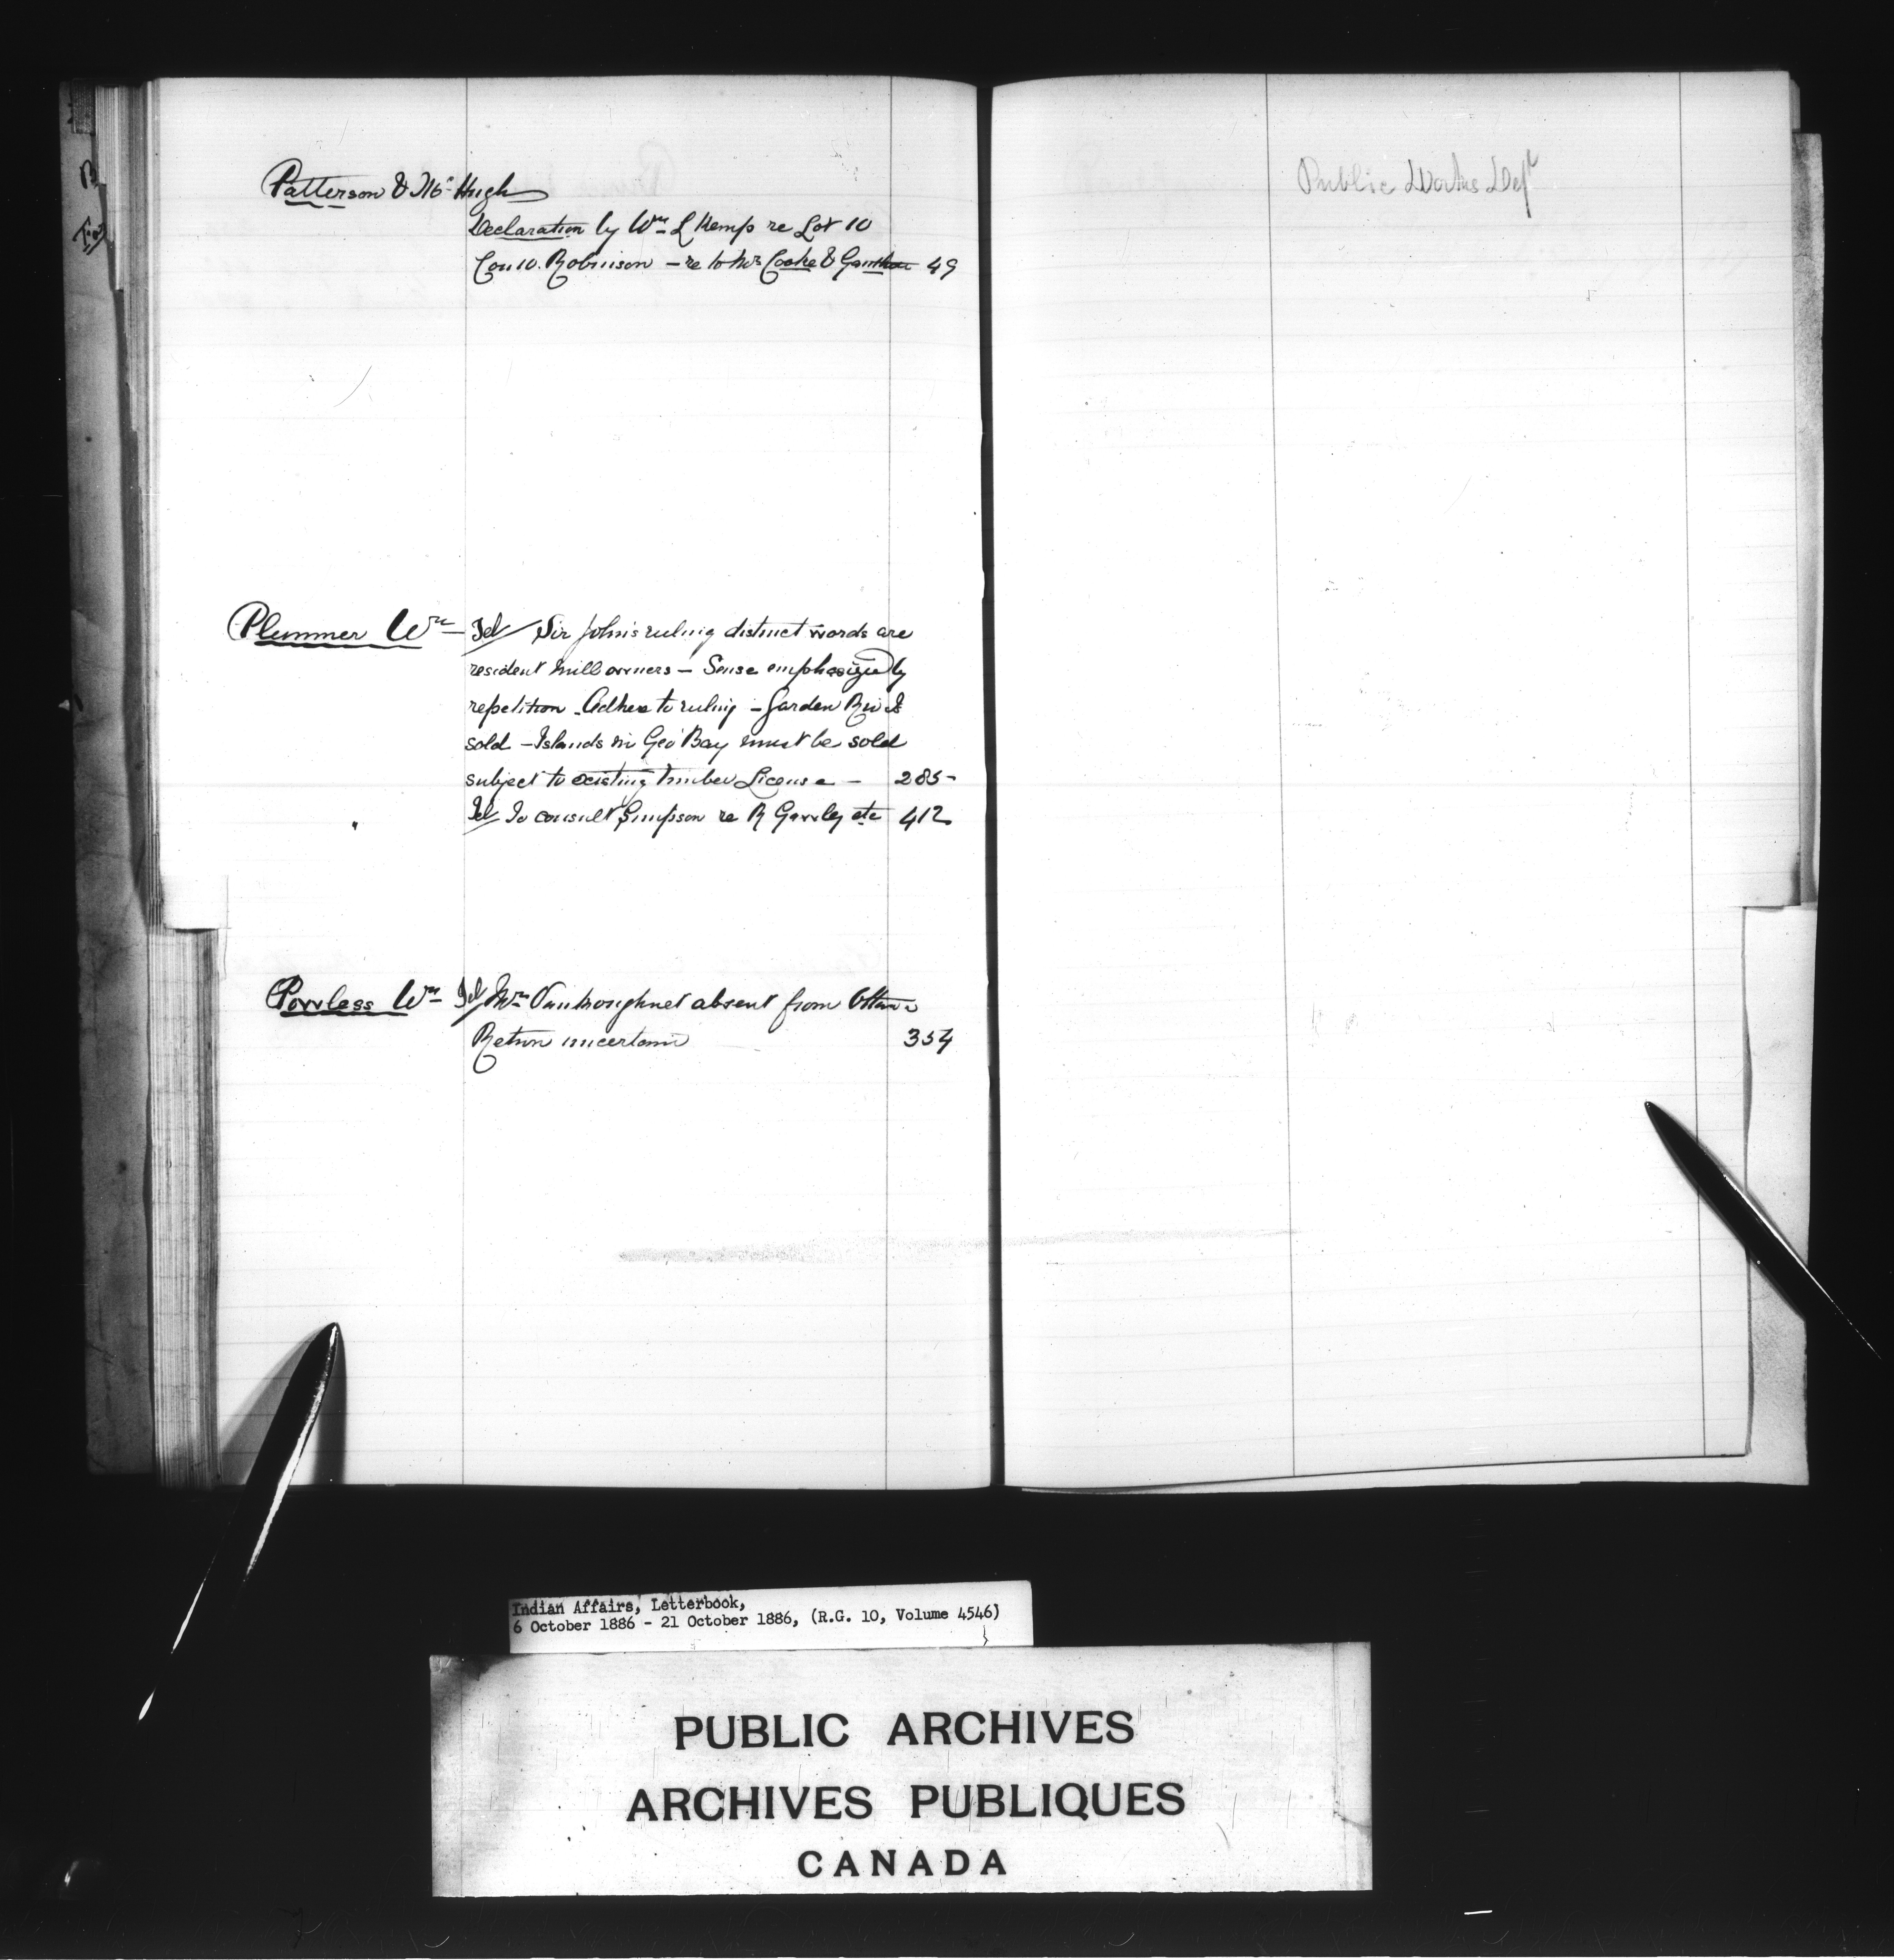 Patterson & McHugh
Declaration by Wm L Kemp re Lot 10
Con 10. Robinson – re to Mr Cooke & 49
Plummer Wm – Tel/ Sir John's ruling distinct words are
resident mill owners – Sense emphasized by
repetition – Adhere to ruling – Garden Riv
sold – Islands in Geo' Bay must be sold
subject to existing timber License – 285-
Tel To consult Simpson re R etc 412
Powless Wm Tel/ Mr Vankoughnet absent from Ottawa
Return uncertain 354
Public Works Dept
Indian Affairs, Letterbook,
6 October 1886 - 21 October 1886, (R.G. 10, Volume 4546)
PUBLIC ARCHIVES
ARCHIVES PUBLIQUES
CANADA